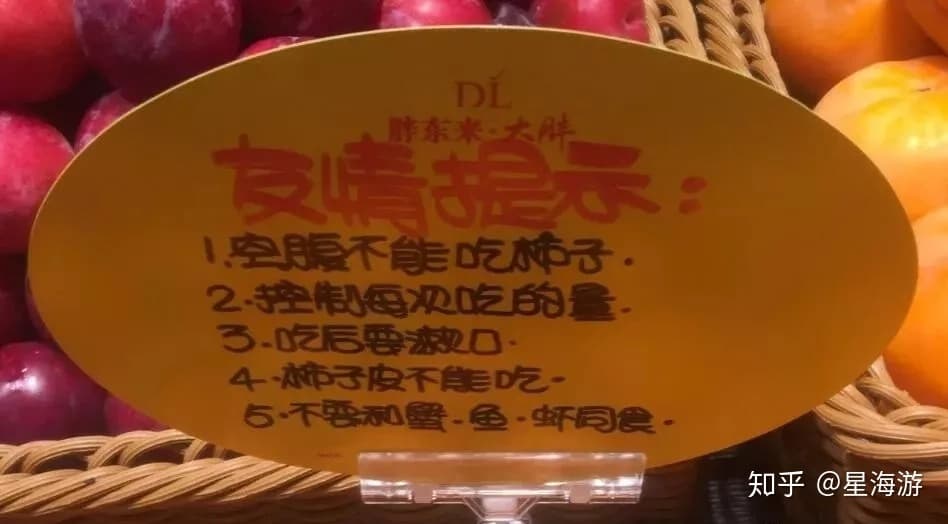 DL
胖东来·大胖
友情提示：
1.空腹不能吃柿子.
2.控制每次吃的量.
3.吃后要漱口.
4.柿子皮不能吃.
5.不要和蟹.鱼.虾同食.
知乎 @星海游